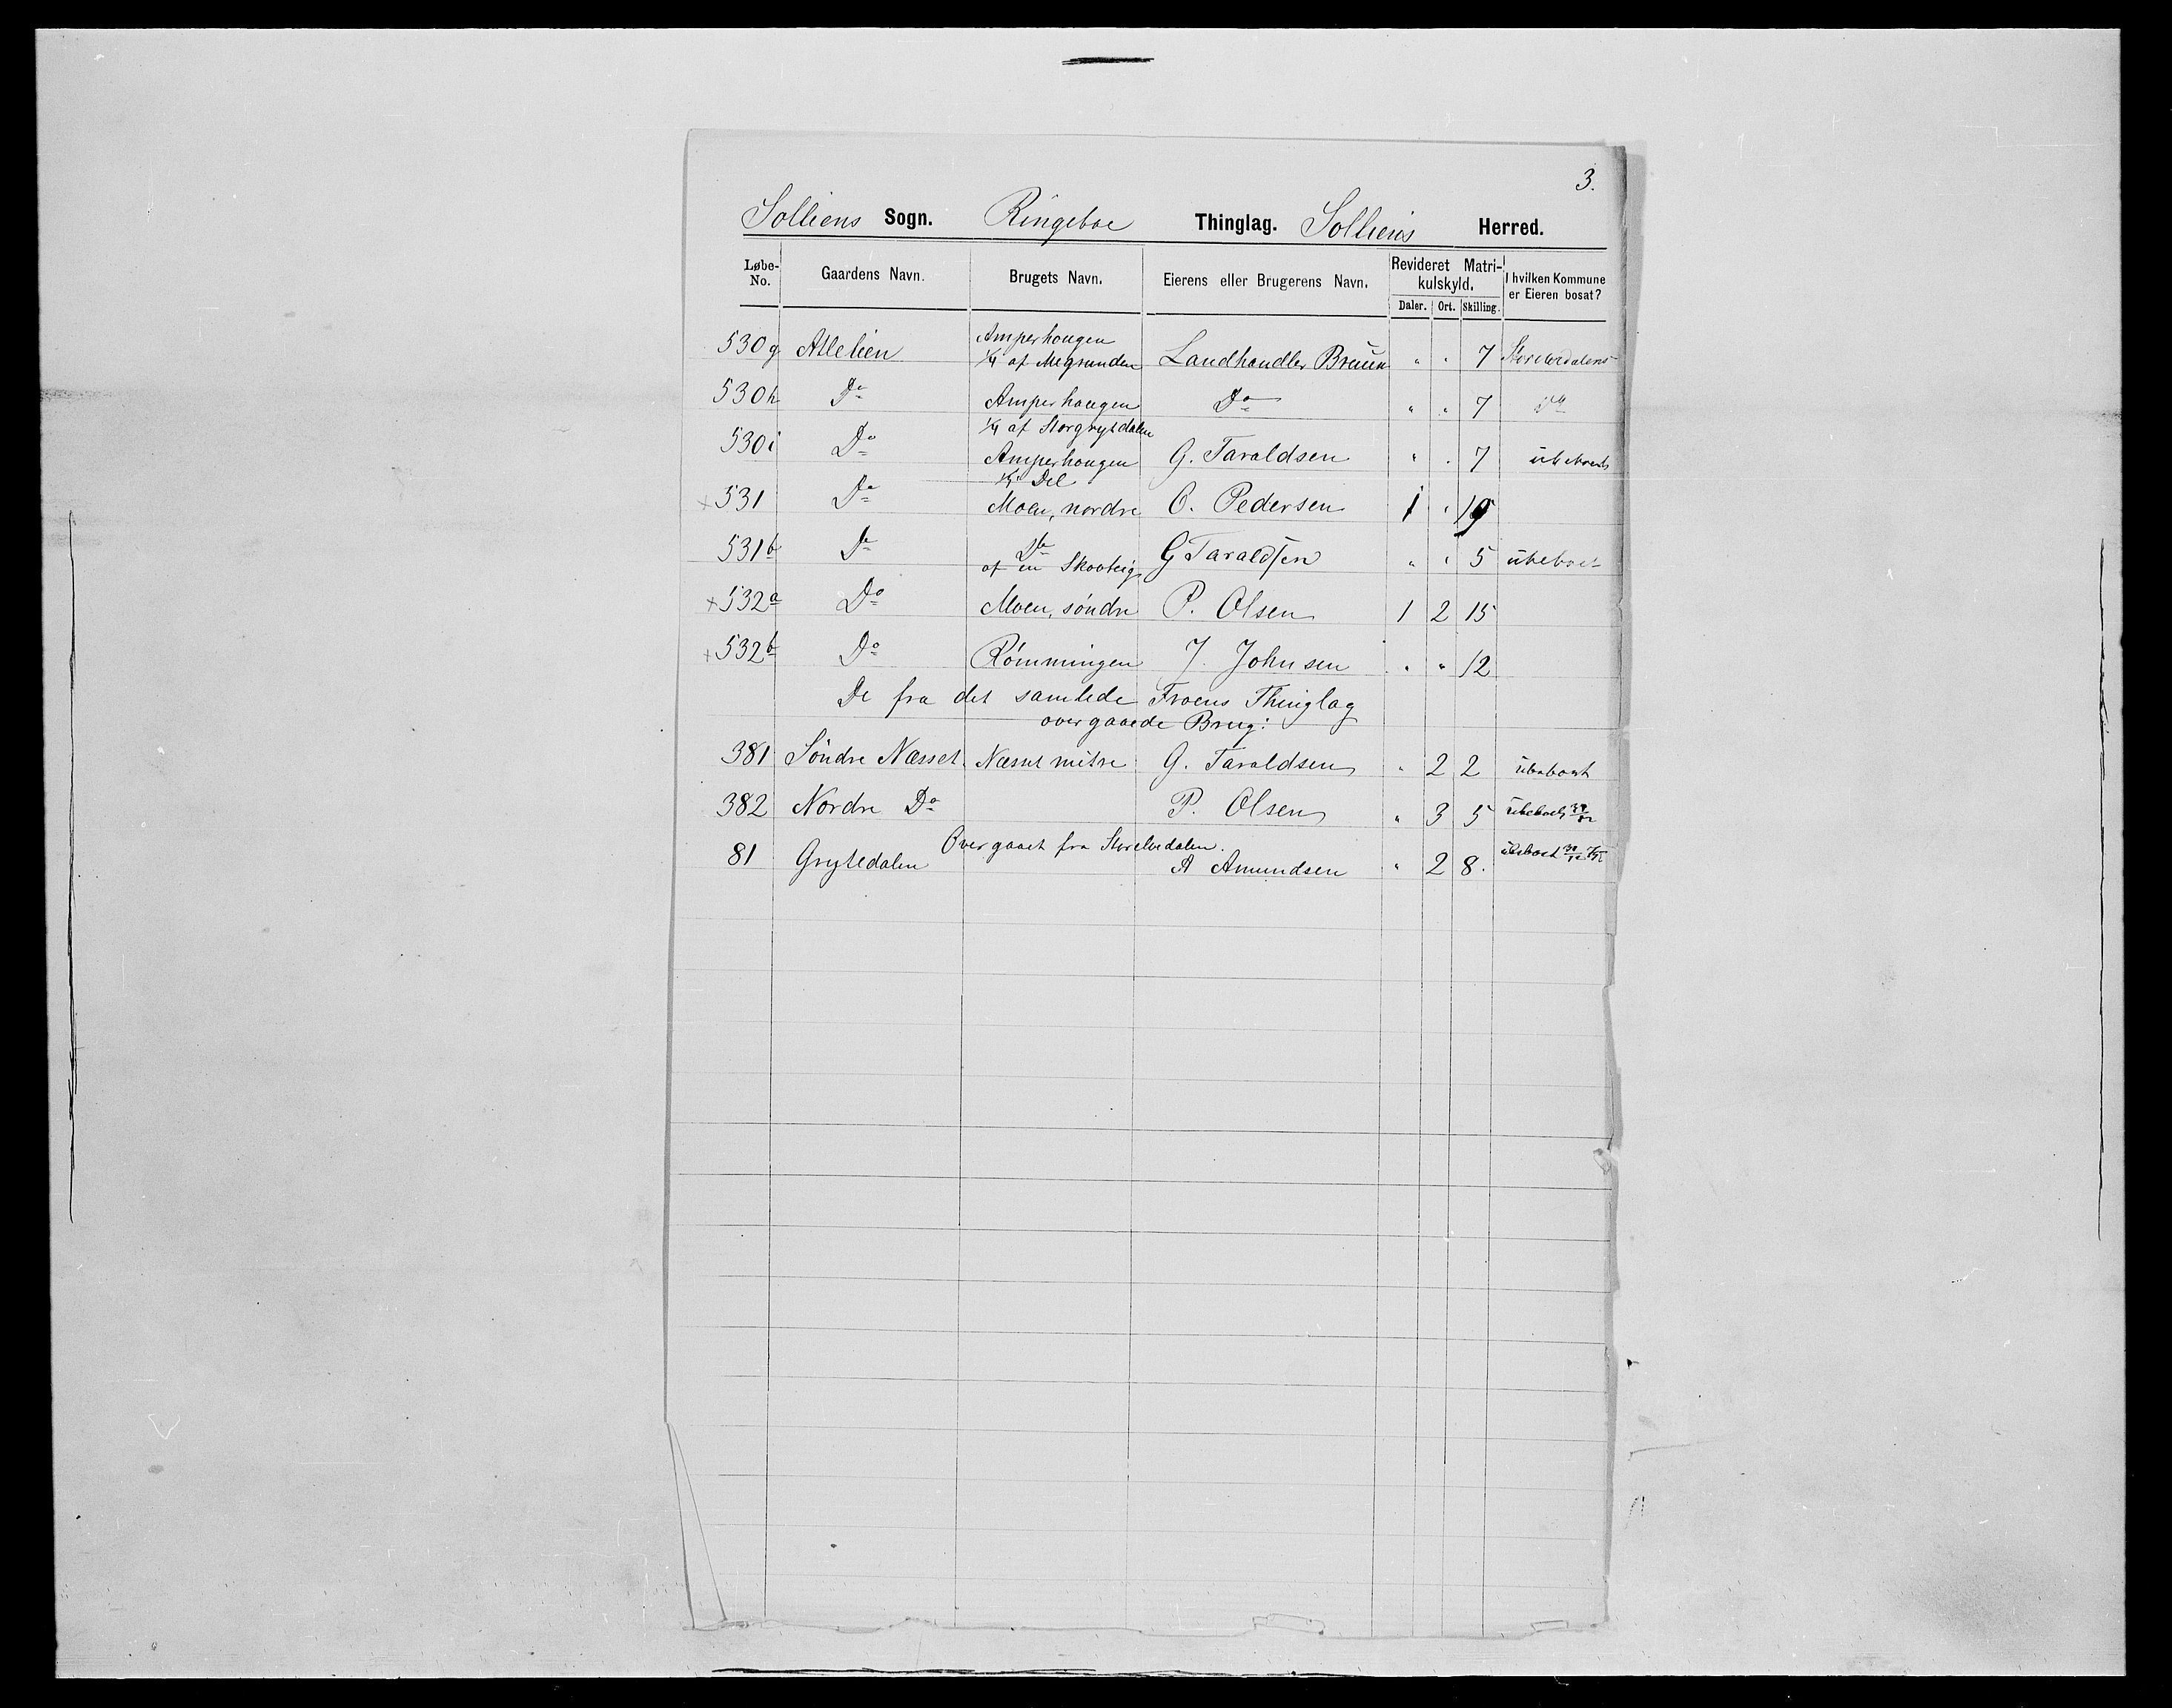 3.
Solliens Sogn. Ringeboe Thinglag. Solliens Herred.
Løbe-No. Gaardens Navn. Brugets Navn. Eierens eller Brugerens Navn. Revideret Matrikulskyld. I hvilken Kommune er Eieren bosat?
Daler. Ort. Skilling.
530g Atlelien Amperhougen 1/4 af Megrunden Landhandler Bruun " " 7 Storelvedalens
530h Do Amperhaugen Do " " 7 Do
1/4 af Storgrytdalen
530i Do Amperhougen G. Taraldsen " " 7 ubeboet
1/4 Del
531 Do Moen, nordre O. Pedersen 1 " 19
531b Do Do af en Skovteig G Taraldsen " " 5 ubeboet
532a Do Moen, søndre P. Olsen 1 2 15
532b Do Rømmingen J. Johnsen " " 12
De fra det samlede Froens Thinglag
overgaaede Brug:
381 Söndre Næsset Næsset mitre G. Taraldsen " 2 2 ubeboet
382 Nordre Do P. Olsen " 3 5 ubeboet
Overgaaet fra Storelvedalen.
81 Grytledalen A Amundsen " 2 8. ubeboet